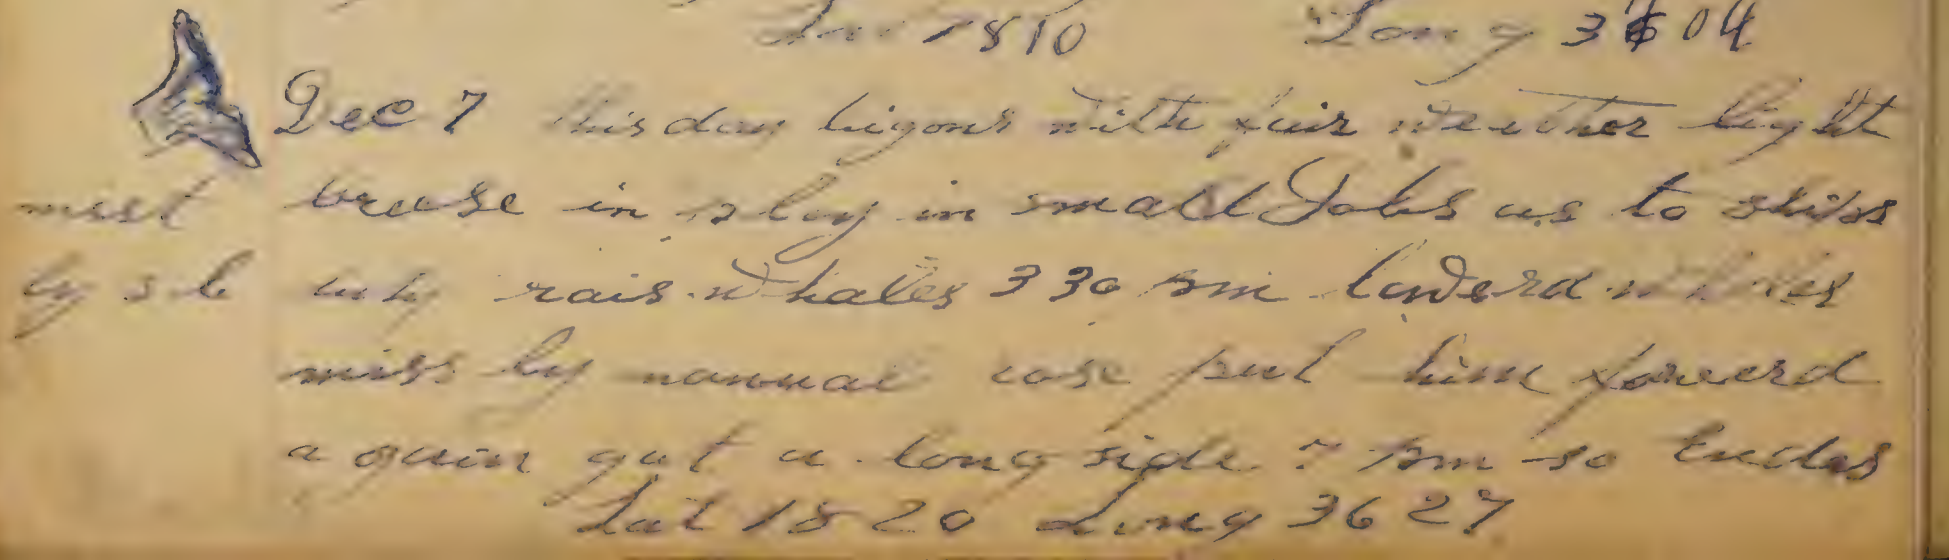 Lat 18 10 Long 36 04
Dec 7 this day bigons with fair weather light
breese in play in small Jobs us to ships
mist
way rais whales 330 pm lowerd whales
by s b
miss by manual rose put him forward
a gain got a long side 7 pm so Endes
Lat 18 20 Long 36 27